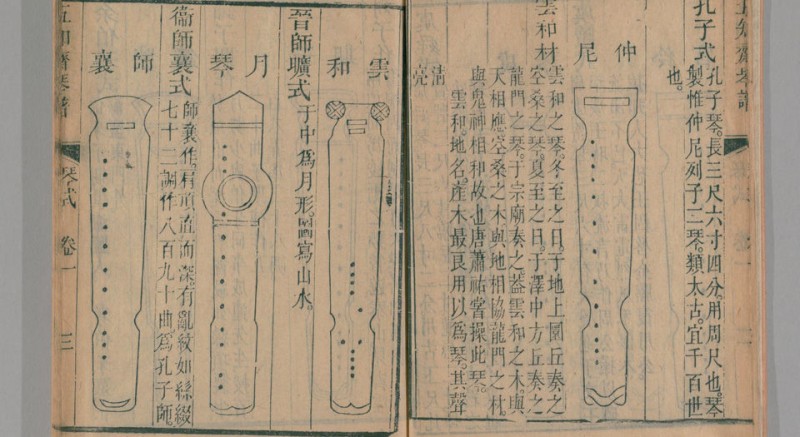 孔子式
孔子琴。長三尺六寸四分。用周尺也。琴
製惟仲尼列子二琴。類太古。宜千百世
也。
仲尼
雲和材
雲和之琴。冬至之日。于地上圜丘奏之
空桑之琴。夏至之日。于澤中方丘奏之
龍門之琴。于宗廟奏之。蓋雲和之木。與
天相應。空桑之木。與地相協。龍門之材。
與鬼神相和故也。唐蕭祐嘗操此琴。
雲和。地名。產木最良。用以爲琴。其聲
清亮
雲和
晉師曠式
于中爲月形。圖寫山水。
月琴
衞師襄式
師襄作。樣頂直而深。有亂紋如絲綴
七十二調作八百九十曲爲孔子師
師襄
五知齋琴譜
琴式 卷一 三